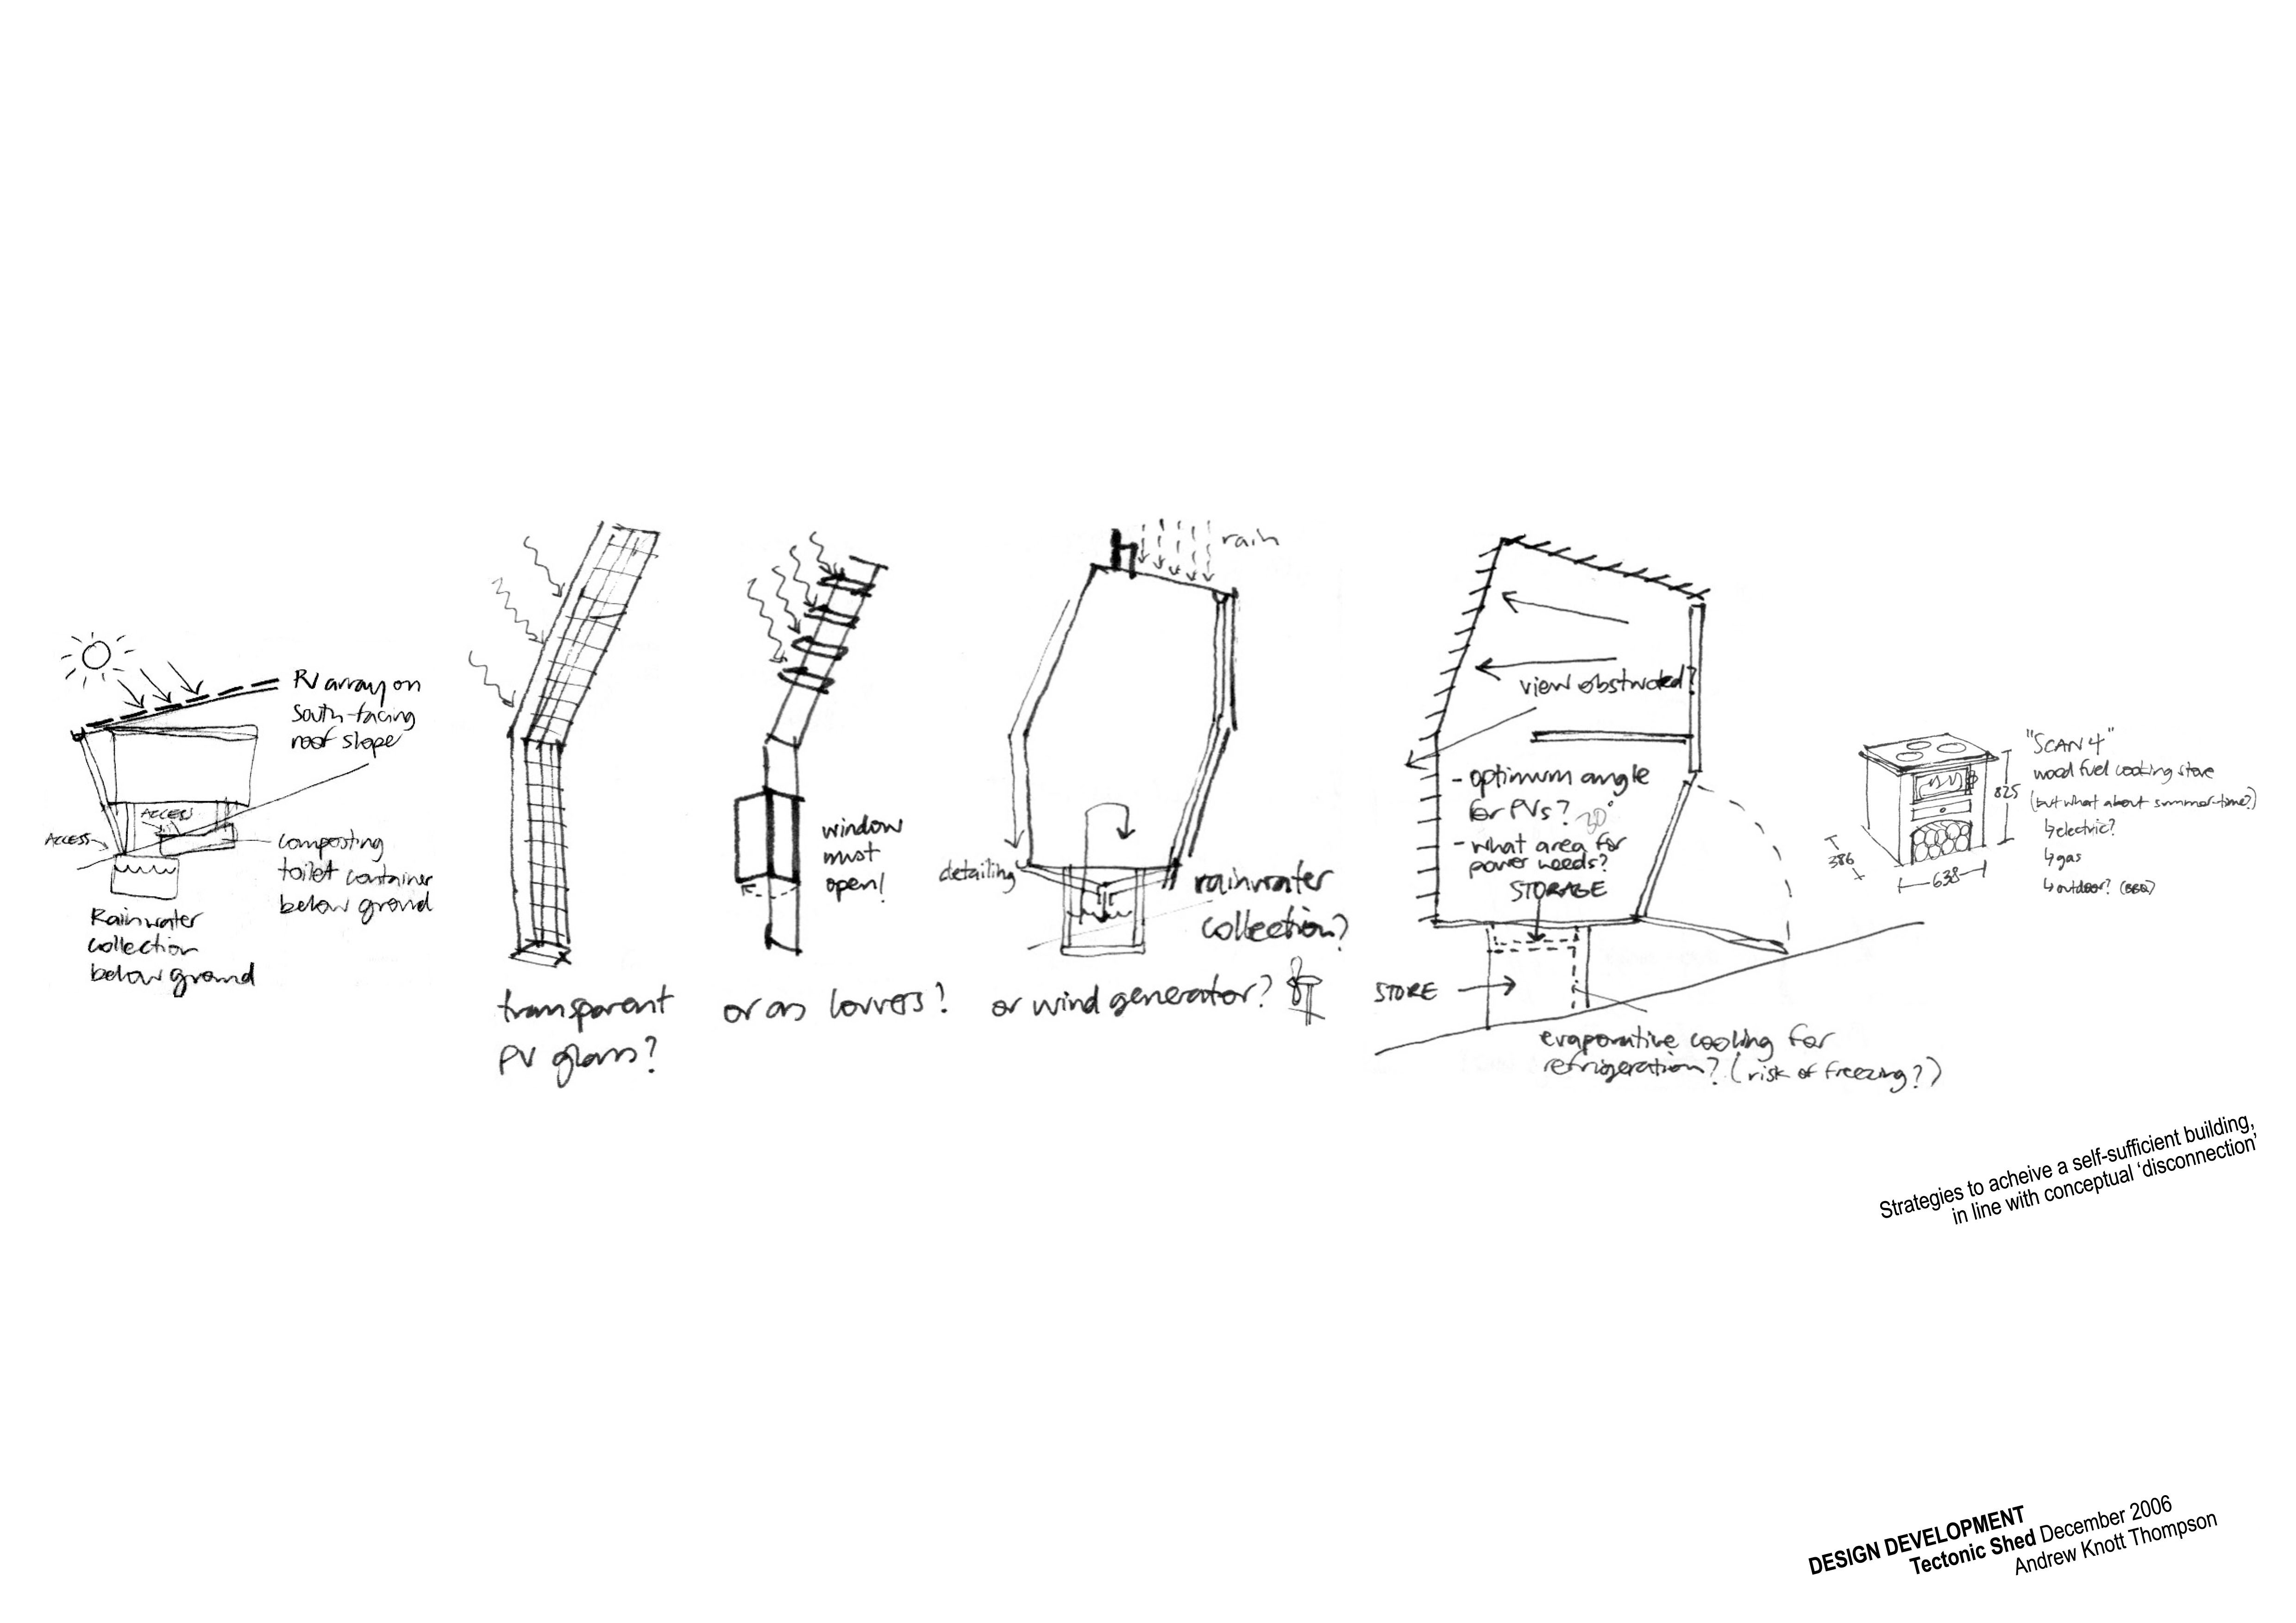 PV array on
South-facing
roof slope
ACCESS
ACCESS
composting
toilet container
below ground
Rainwater
collection
below ground
transparent
PV glass?
window
must
open!
or as louvres?
rain
detailing
rainwater
collection?
or wind generator?
view obstructed?
- optimum angle
for PVs? 30°
- what area for
power needs?
STORAGE
STORE
evaporative cooling for
refrigeration? (risk of freezing?)
"SCAN 4"
wood fuel cooking stove
(but what about summer-time?)
↳ electric?
↳ gas
↳ outdoor? (BBQ)
825
386
638
Strategies to acheive a self-sufficient building,
in line with conceptual ‘disconnection’
DESIGN DEVELOPMENT
Tectonic Shed December 2006
Andrew Knott Thompson